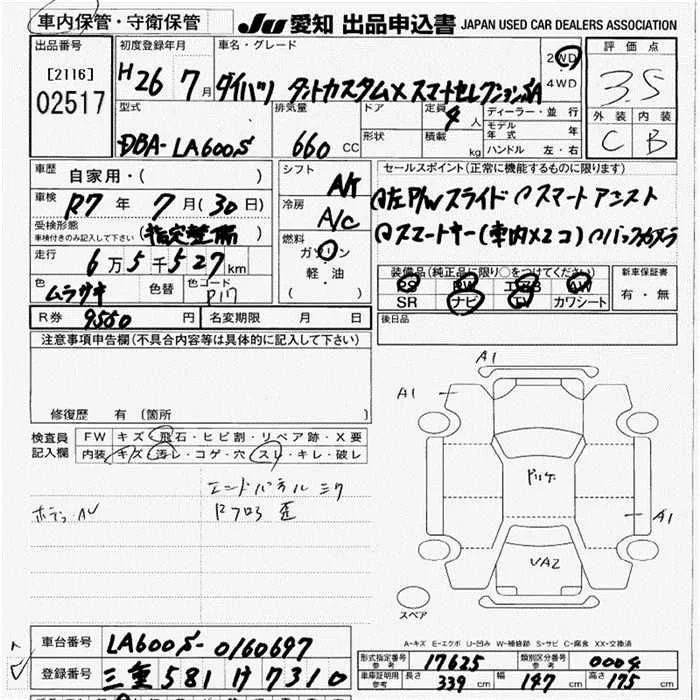 車内保管・守衛保管 JU 愛知 出品申込書 JAPAN USED CAR DEALERS ASSOCIATION
出品番号 初度登録年月 車名・グレード 評価点
[2116] H26 7月 ダイハツ タントカスタムX スマートセレクションSA 2WD 3.5
02517 4WD
型式 排気量 ドア 定員 4人 ディーラー・並行 外装 内装
DBA-LA600S 660 CC 形状 積載 kg モデル年式 年 C B
ハンドル 左・右
車歴 自家用・( ) シフト AT セールスポイント(正常に機能するものに限ります)
車検 R7年7月(30日) 冷房 A/C 左P/Wスライド スマートアシスト
受検形態 車検付きのみ記入して下さい (指定整備) 燃料 ガソリン スマートキー(車内×2コ) バックカメラ
走行 6万5千527km 軽・油 装備品(純正品に限り○をつけてください) 新車保証書
色 ムラサキ 色替 色コード P17 ( ) PS PW エアB AW 有・無
SR ナビ TV カワシート
R券 9550円 名変期限 月 日 後日品
注意事項申告欄(不具合内容等は具体的に記入して下さい)
A1
A1
修復歴 有(箇所
検査員 FW キズ・飛石・ヒビ割・リペア跡・X要
記入欄 内装 キズ・汚レ・コゲ・穴・スレ・キレ・破レ
A1
UA2
スペア
A-キズ E-エクボ U-凹み W-補修跡 S-サビ C-腐食 XX-交換済
車台番号 LA600S-0160697 形式指定番号 参考 17625 類別区分番号 参考 0004
登録番号 三重 581 け 7310 車庫証明用 参考 長さ 339cm 幅 147cm 高さ 175cm